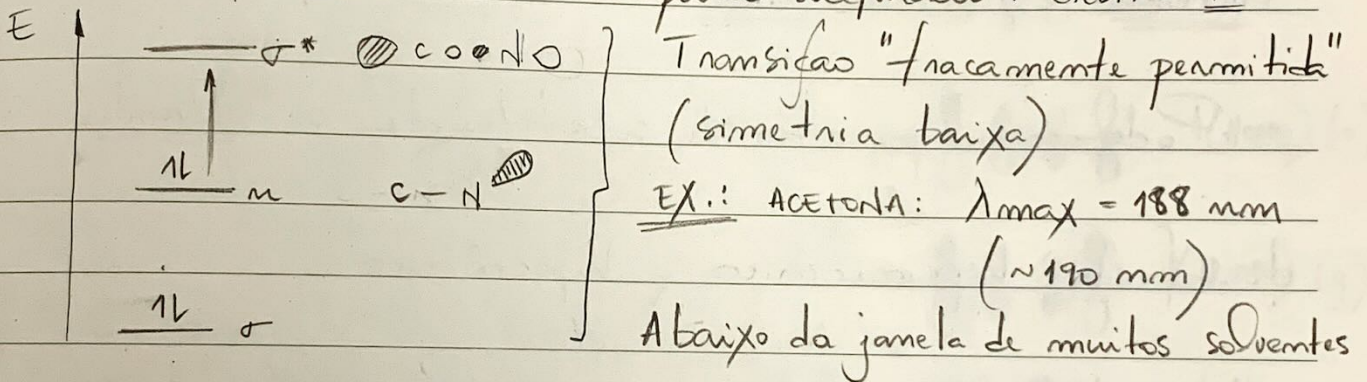 E
σ* C N
Transição "fracamente permitida"
(simetria baixa)
1L n C - N
EX.: ACETONA: λmax = 188 nm
(~190 nm)
1L σ
Abaixo da janela de muitos solventes